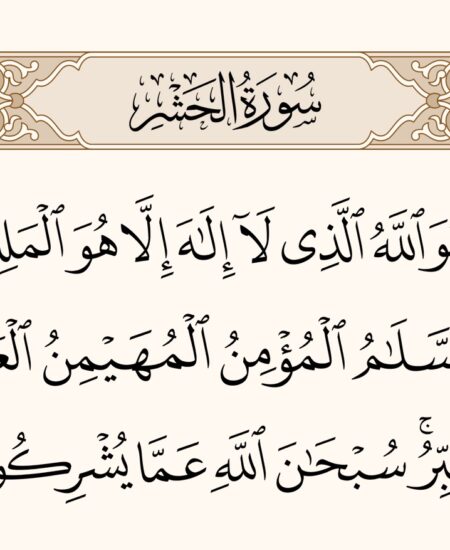 سُورَةُ الحَشْرِ
وَ ٱللَّهُ ٱلَّذِى لَآ إِلَٰهَ إِلَّا هُوَ ٱلْمَلِ
سَّلَـٰمُ ٱلْمُؤْمِنُ ٱلْمُهَيْمِنُ ٱلْعَ
بِّرُۚ سُبْحَـٰنَ ٱللَّهِ عَمَّا يُشْرِكُو